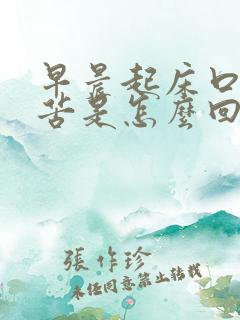 早晨起床口
苦是怎麼回
張作珍
未经同意禁止转载